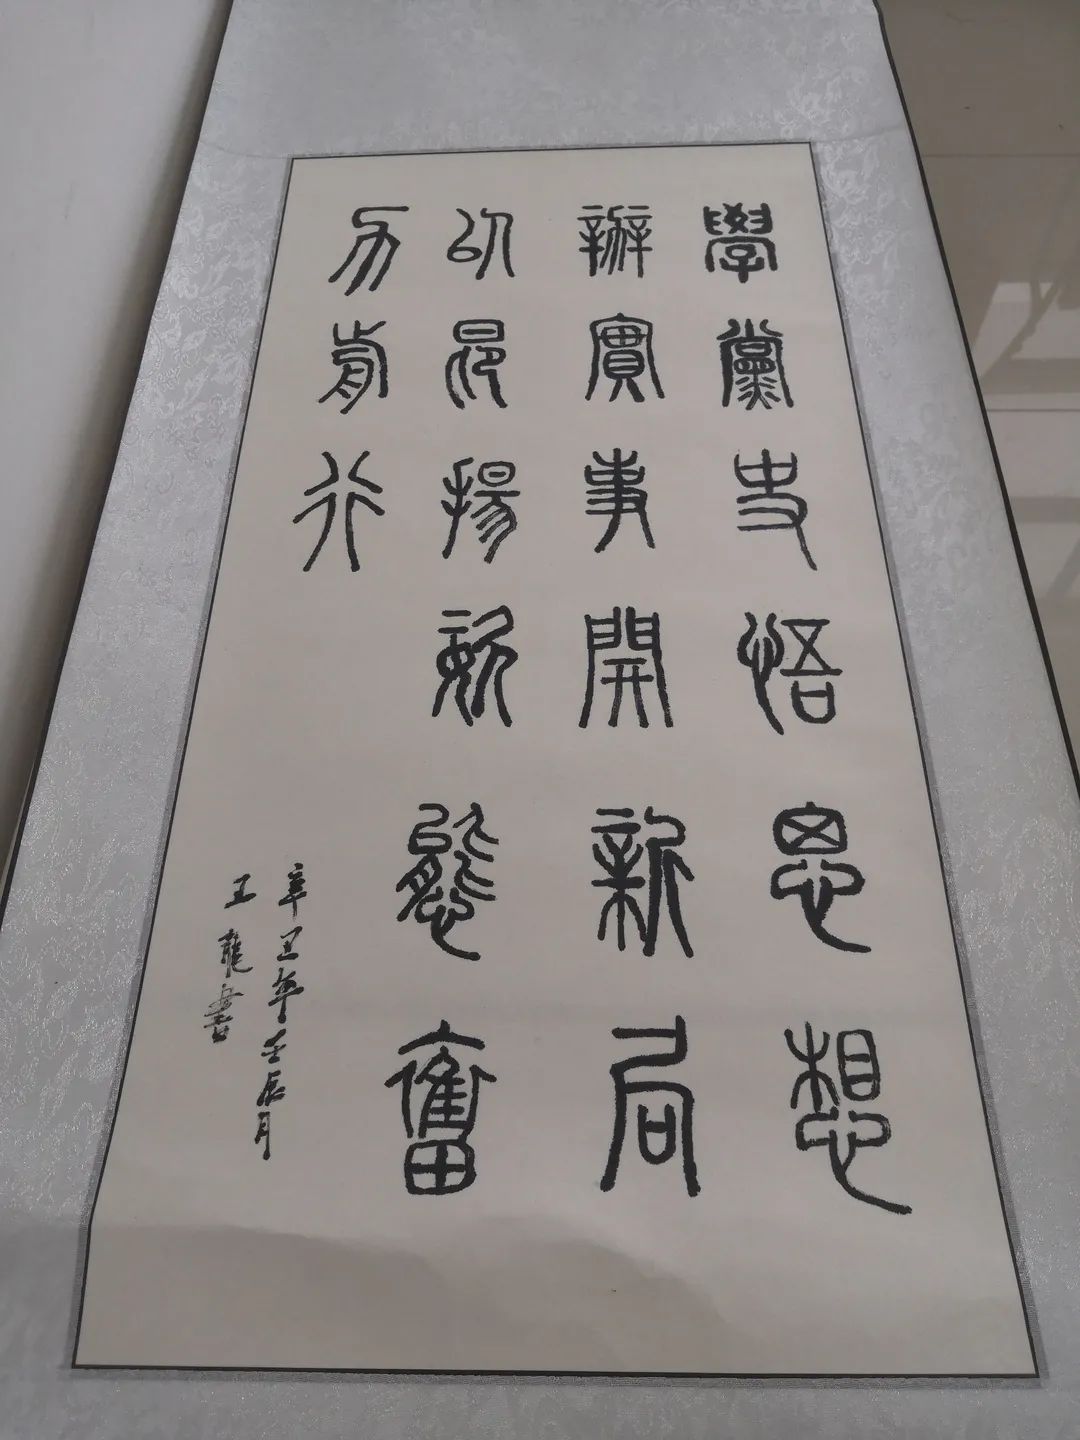 學黨史悟思想
辦實事開新局
以昂揚姿態奮
力前行
辛丑年壬辰月
王龍書